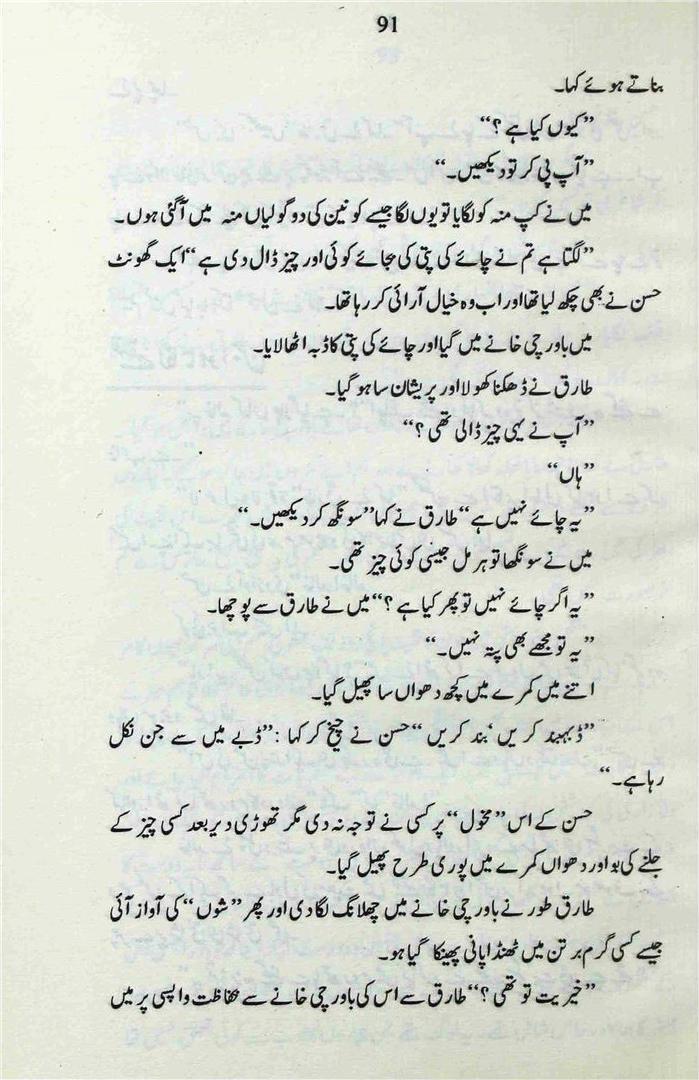 91
بناتے ہوئے کہا۔
”کیوں کیا ہے ؟“
”آپ پی کر تو دیکھیں۔“
میں نے کپ منہ کو لگایا تو یوں لگا جیسے کونین کی دو گولیاں منہ میں آ گئی ہوں۔
”لگتا ہے تم نے چائے کی پتی کی بجائے کوئی اور چیز ڈال دی ہے“ ایک گھونٹ
حسن نے بھی چکھ لیا تھا اور اب وہ خیال آرائی کر رہا تھا۔
میں باورچی خانے میں گیا اور چائے کی پتی کا ڈبہ اٹھا لایا۔
طارق نے ڈھکنا کھولا اور پریشان سا ہو گیا۔
”آپ نے یہی چیز ڈالی تھی ؟“
”ہاں“
”یہ چائے نہیں ہے“ طارق نے کہا ”سونگھ کر دیکھیں۔“
میں نے سونگھا تو ہرمل جیسی کوئی چیز تھی۔
”یہ اگر چائے نہیں تو پھر کیا ہے ؟“ میں نے طارق سے پوچھا۔
”یہ تو مجھے بھی پتہ نہیں۔“
اتنے میں کمرے میں کچھ دھواں سا پھیل گیا۔
”ڈبہ بند کریں ‘ بند کریں“ حسن نے چیخ کر کہا : ”ڈبے میں سے جن نکل
رہا ہے۔“
حسن کے اس ”مخول“ پر کسی نے توجہ نہ دی مگر تھوڑی دیر بعد کسی چیز کے
جلنے کی بو اور دھواں کمرے میں پوری طرح پھیل گیا۔
طارق طور نے باورچی خانے میں چھلانگ لگا دی اور پھر ”شوں“ کی آواز آئی
جیسے کسی گرم برتن میں ٹھنڈا پانی پھینکا گیا ہو۔
”خیریت تو تھی ؟“ طارق سے اس کی باورچی خانے سے حفاظت واپسی پر میں